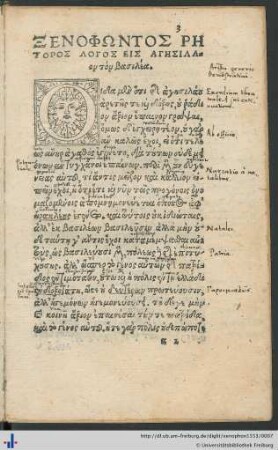 3
ΞΕΝΟΦΩΝΤΟΣ ΡΗ
ΤΟΡΟΣ ΛΟΓΟΣ ΕΙΣ ΑΓΗΣΙΛΑ-
ον τὸν βασιλέα.
Οἶδα μὲν ὅτι τῆς ἀγησιλάου
ἀρετῆς τε καὶ δόξης, οὐ ῥάδιον
ἄξιον ἔπαινον γράψαι,
ὅμως δ' ἐγχειρητέον. οὐ γὰρ
ἂν καλῶς ἔχοι, εἰ ὅτι τελέ-
ως ἀνὴρ ἀγαθὸς ἐγένετο, διὰ τοῦτο οὐδὲ μειό-
νων ἂν τυγχάνοι ἐπαίνων. περὶ μὲν οὖν εὐγε-
νείας αὐτοῦ, τί ἄν τις μεῖζον καὶ κάλλιον εἰ-
πεῖν ἔχοι, ἢ ὅτι ἔτι καὶ νῦν τοῖς προγόνοις ὀνο-
μαζομένοις ἀπομνημονεύεται ὁπόστος ἀφ' ἡ-
ρακλέους ἐγένετο, καὶ τούτοις οὐκ ἰδιώταις,
ἀλλ' ἐκ βασιλέων βασιλεῦσιν. ἀλλὰ μὴν οὐ-
δὲ ταύτῃ γ' ἄν τις ἔχοι καταμέμψασθαι αὐτ-
οὺς, ὡς βασιλεύουσι μὲν, πόλεως δὲ τῆς ἐπιτυ-
χούσης. ἀλλ' ὥσπερ τὸ γένος αὐτῶν τῆς πατρί-
δος ἐντιμότατον, οὕτω καὶ ἡ πόλις ἐν τῇ ἑλλάδι
ἐνδοξοτάτη, ὥστε οὐ δευτέρων πρωτεύουσιν,
ἀλλ' ἡγεμόνων ἡγεμονεύουσι. τῇδέ γε μὴν
καὶ κοινῇ ἄξιον ἐπαινέσαι τήν τε πατρίδα
καὶ τὸ γένος αὐτοῦ, ἥ τε γὰρ πόλις οὐδεπώπο-
Natales.
Patria.
http://dl.ub.uni-freiburg.de/diglit/xenophon1513/0007